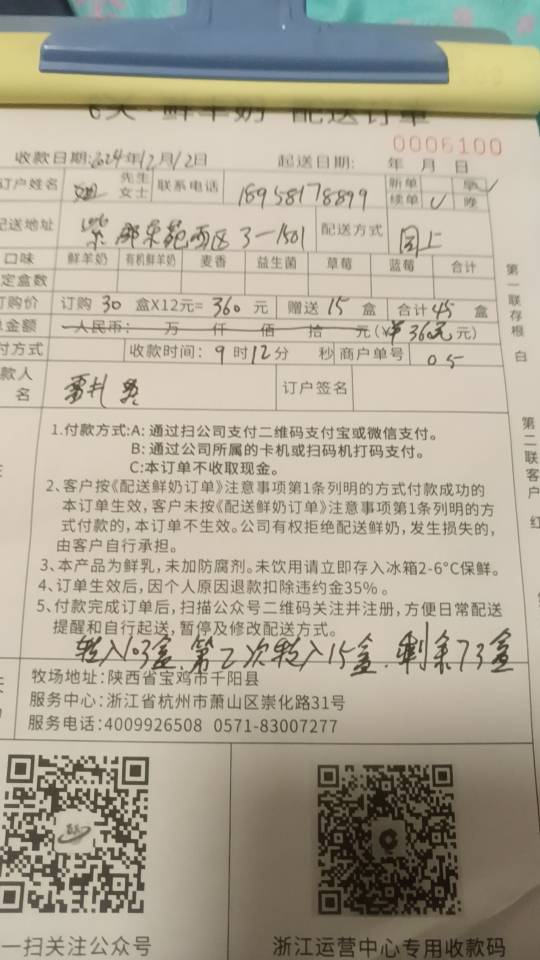 鲜羊奶 配送订单
0006100
收款日期:2024年12月12日 起送日期: 年 月 日
订户姓名 先生 女士 联系电话 18958178899 新单 续单 ✓ 早 ✓ 晚
配送地址 西区3-1501 配送方式 同上
口味 鲜羊奶 有机鲜羊奶 麦香 益生菌 草莓 蓝莓 合计
定盒数
订购价 订购 30 盒X12元= 360 元 赠送 15 盒 合计 45 盒
总金额 人民币: 万 仟 佰 拾 元(¥ 360元 元)
付方式 收款时间: 9 时 12 分 秒 商户单号 05
款人 名 订户签名
1、付款方式:A: 通过扫公司支付二维码支付宝或微信支付。
B: 通过公司所属的卡机或扫码机打码支付。
C:本订单不收取现金。
2、客户按《配送鲜奶订单》注意事项第1条列明的方式付款成功的
本订单生效,客户未按《配送鲜奶订单》注意事项第1条列明的方
式付款的,本订单不生效。公司有权拒绝配送鲜奶,发生损失的,
由客户自行承担。
3、本产品为鲜乳,未加防腐剂。未饮用请立即存入冰箱2-6°C保鲜。
4、订单生效后,因个人原因退款扣除违约金35%。
5、付款完成订单后,扫描公众号二维码关注并注册,方便日常配送
提醒和自行起送,暂停及修改配送方式。
转入103盒.第2次转入15盒.剩余73盒
牧场地址:陕西省宝鸡市千阳县
服务中心:浙江省杭州市萧山区崇化路31号
服务电话:4009926508 0571-83007277
一扫关注公众号 浙江运营中心专用收款码
第一联存根 白
第二联客户 红